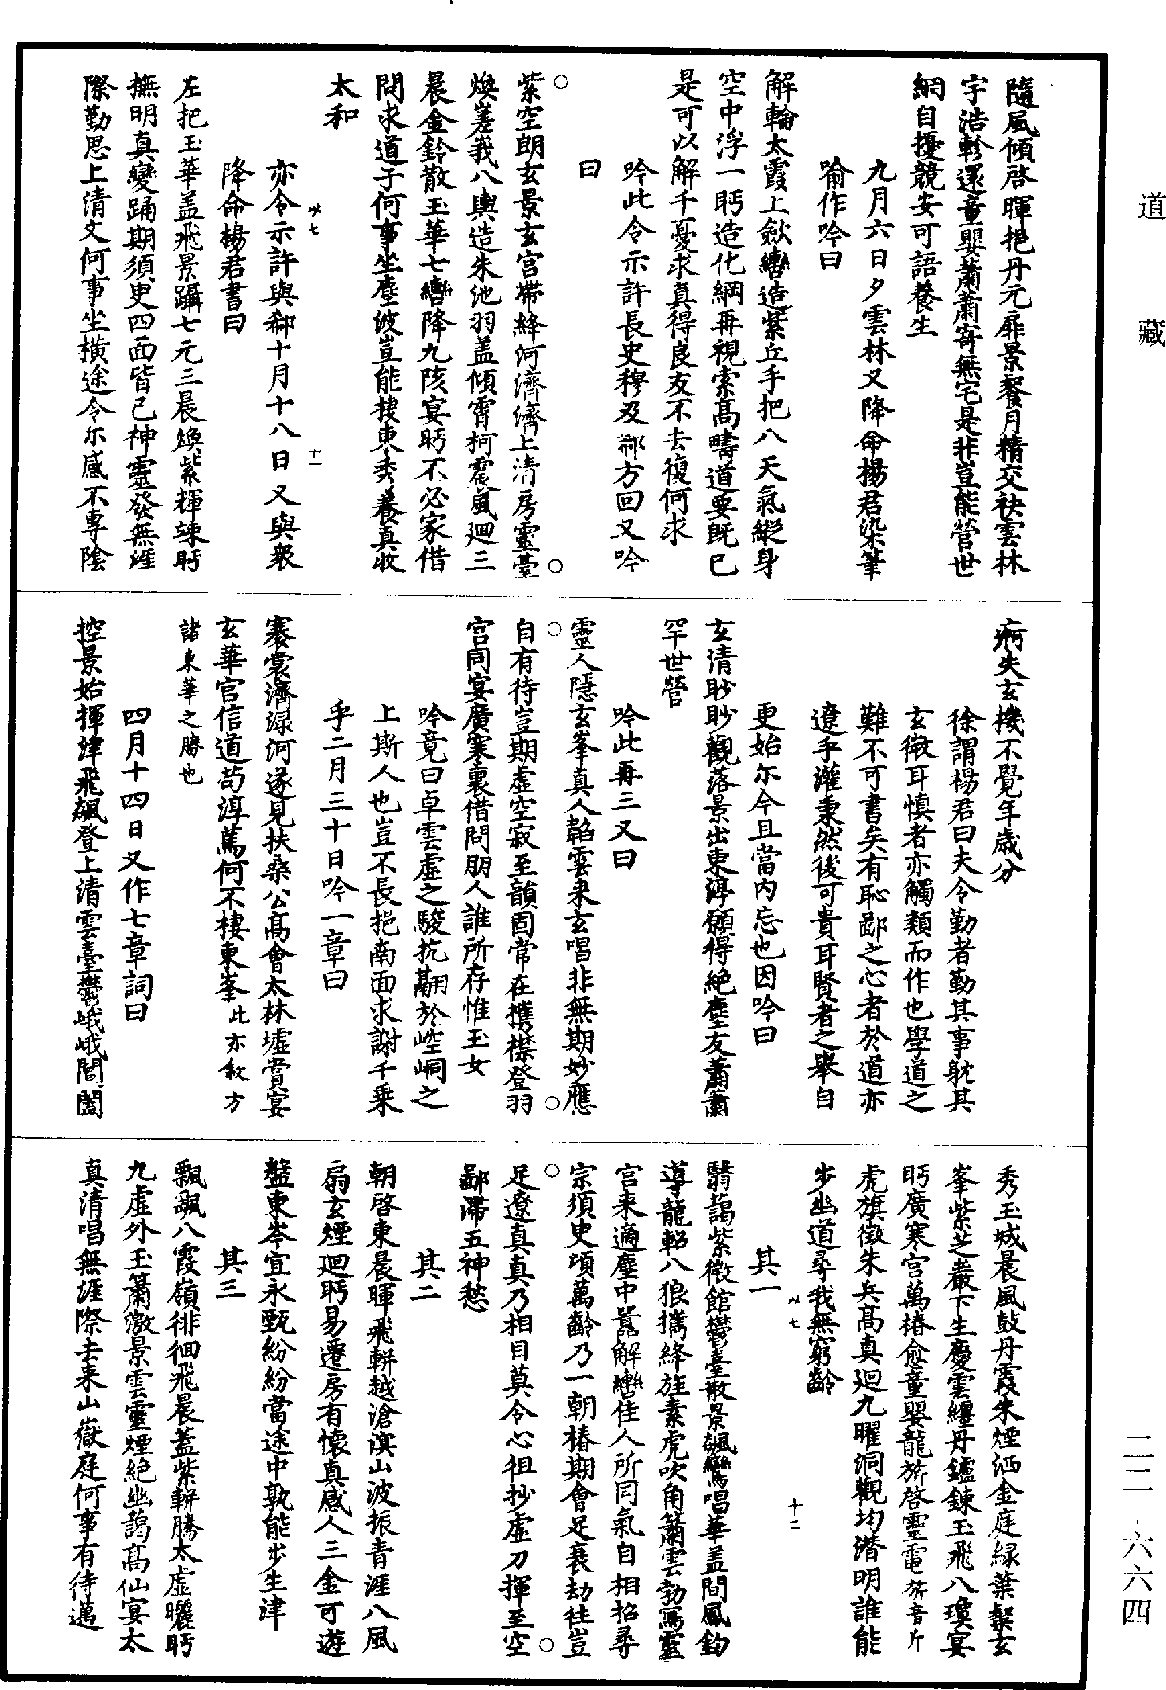 道藏
二二·六六四
隨風傾啓暉挹丹元扉景餐月精交袂雲林
宇浩軫還童嬰蕭蕭寄無宅是非豈能營世
網自擾競安可語養生
九月六日夕雲林又降命楊君染筆
喻作吟曰
解輪太霞上斂轡造紫丘手把八天氣縱身
空中浮一眄造化綱再視索高疇道要既已
是可以解千憂求真得良友不去復何求
吟此令示許長史穆及郗方回又吟
曰
紫空朗玄景玄宮帶絳河濟濟上清房靈臺
煥嵳峩八輿造朱池羽蓋傾霄柯震風廻三
晨金鈴散玉華七轡降九陔宴眄不必家借
問求道子何事坐塵波豈能棲東秀養真收
太和
亦令示許與郗十月十八日又與衆
降命楊君書曰
以七
十一
左把玉華蓋飛景躡七元三晨煥紫輝竦眄
撫明真變踊期須臾四面皆已神靈發無涯
際勤思上清文何事坐橫途令尔感不專陰
痾失玄機不覺年歲分
徐謂楊君曰夫令勤者勤其事躭其
玄微耳慎者亦觸類而作也學道之
難不可書矣有恥鄙之心者於道亦
遼乎灌秉然後可貴耳賢者之舉自
更始尓今且當内忘也因吟曰
玄清眇眇觀落景出東淳願得絶塵友蕭蕭
罕世營
吟此再三又曰
靈人隱玄峯真人韜雲来玄唱非無期妙應
自有待豈期虛空寂至韻固常在携襟登羽
宮同宴廣寒裏借問朋人誰所存惟玉女
吟竟曰卓雲虛之駿抗翮於崆峒之
上斯人也豈不長挹南面求謝千乗
乎二月三十日吟一章曰
褰裳濟渌河遂見扶桑公高會太林墟賞宴
玄華宮信道苟淳篤何不棲東峯此亦敘方
諸東華之勝也
四月十四日又作七章詞曰
控景始揮津飛飇登上清雲臺鬱峨峨閶闔
秀玉城晨風鼓丹霞朱煙洒金庭緑葉粲玄
峯紫芝巖下生慶雲纏丹鑪鍊玉飛八瓊宴
眄廣寒宮萬椿愈童嬰龍旂啓靈電旂音斤
虎旗徵朱兵高真廻九曜洞觀均潛明誰能
步幽道尋我無窮齡
其一
以七
十二
翳藹紫微館鬱臺散景飇鸞唱華蓋間鳳鈞
導龍軺八狼攜絳旌素虎吹角簫雲勃寫靈
宮来適塵中囂解轡佳人所同氣自相招尋
宗須臾頃萬齡乃一朝椿期會足衰劫往豈
足遼真真乃相目莫令心徂抄虛刀揮至空
鄙滯五神愁
其二
朝啓東晨暉飛軿越滄溟山波振青涯八風
扇玄煙廻眄易遷房有懷真感人三金可遊
盤東岑宜永甄紛紛當途中孰能步生津
其三
飄飇八霞嶺徘徊飛晨蓋紫軿騰太虛曬眄
九虛外玉簫激景雲靈煙絶幽藹高仙宴太
真清唱無涯際去来山嶽庭何事有待邁